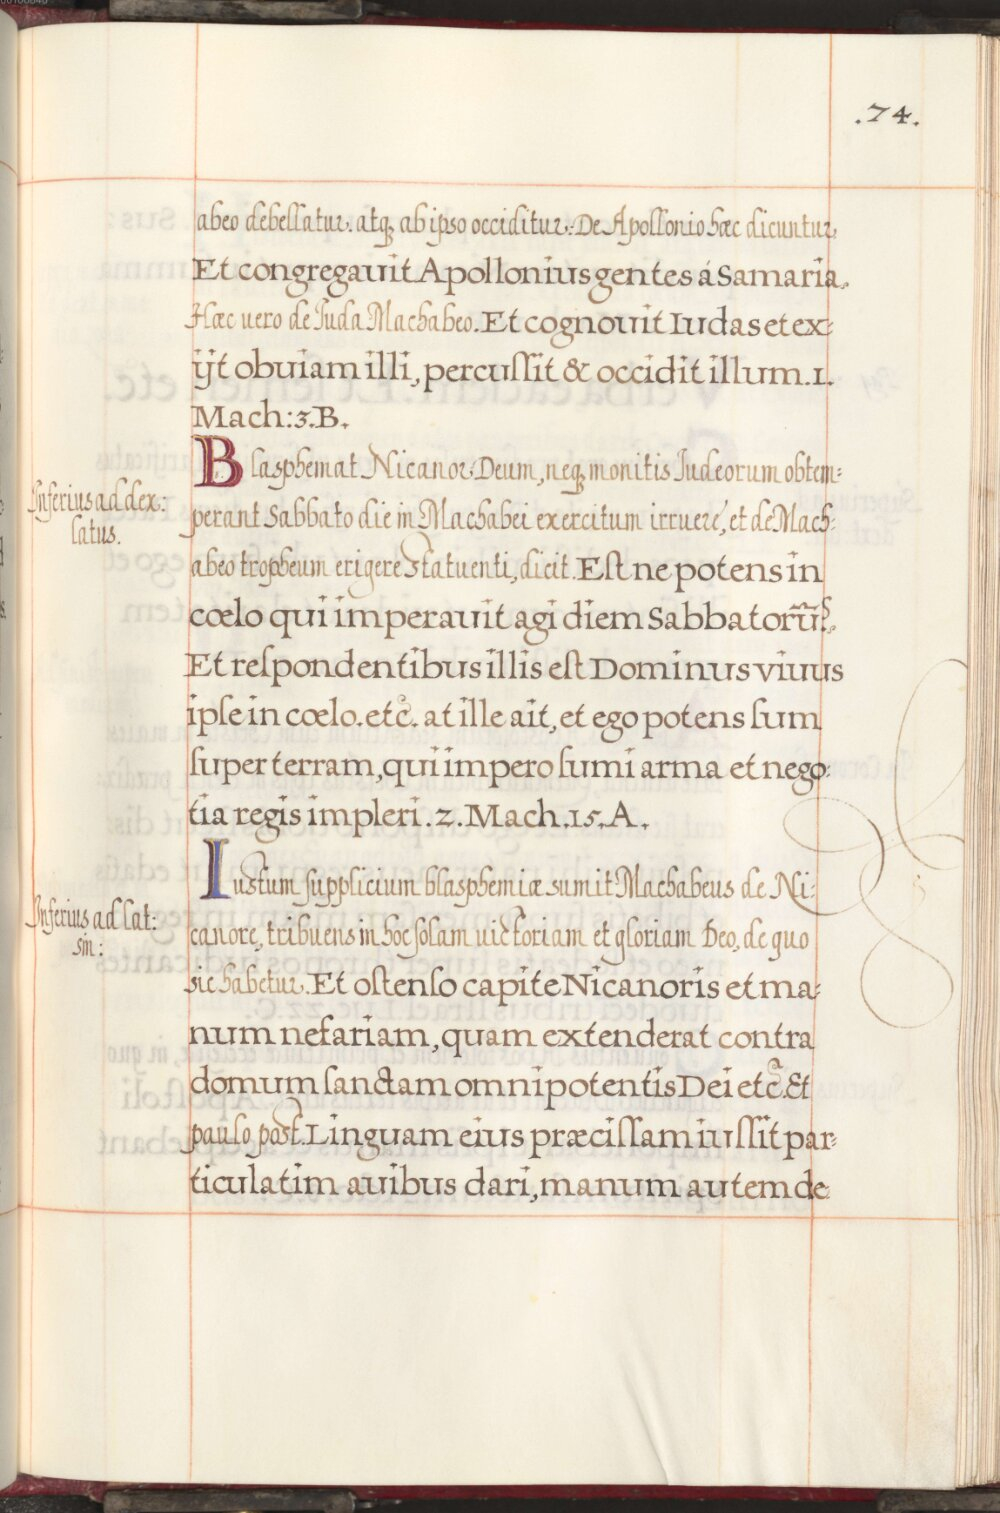 .74.
abeo debellatur. atq; ab ipso occiditur. De Apollonio hæc dicuntur,
Et congregauit Apollonius gentes á Samaria.
Hæc uero de Iuda Machabeo. Et cognouit Iudas et ex:
ijt obuiam illi, percussit & occidit illum. 1.
Mach: 3. B.
Blasphemat Nicanor Deum, neq; monitis Iudeorum obtem:
Inferius ad dex:
latus.
perant Sabbato die in Machabei exercitum irruere, et de Mach:
abeo tropheum erigere statuenti, dicit. Est ne potens in
cœlo qui imperauit agi diem Sabbatorũ?.
Et respondentibus illis est Dominus viuus
ipse in cœlo. etc̃. at ille ait, et ego potens sum
super terram, qui impero sumi arma et nego:
tia regis impleri. 2. Mach. 15. A.
Iustum supplicium blasphemiæ sumit Machabeus de Ni:
Inferius ad lat:
sin:
canore, tribuens in hoc solam uictoriam et gloriam Deo, de quo
sic habetur. Et ostenso capite Nicanoris et ma:
num nefariam, quam extenderat contra
domum sanctam omnipotentis Dei etc̃. Et
paulo post. Linguam eius præcissam iussit par:
ticulatim auibus dari, manum autem de